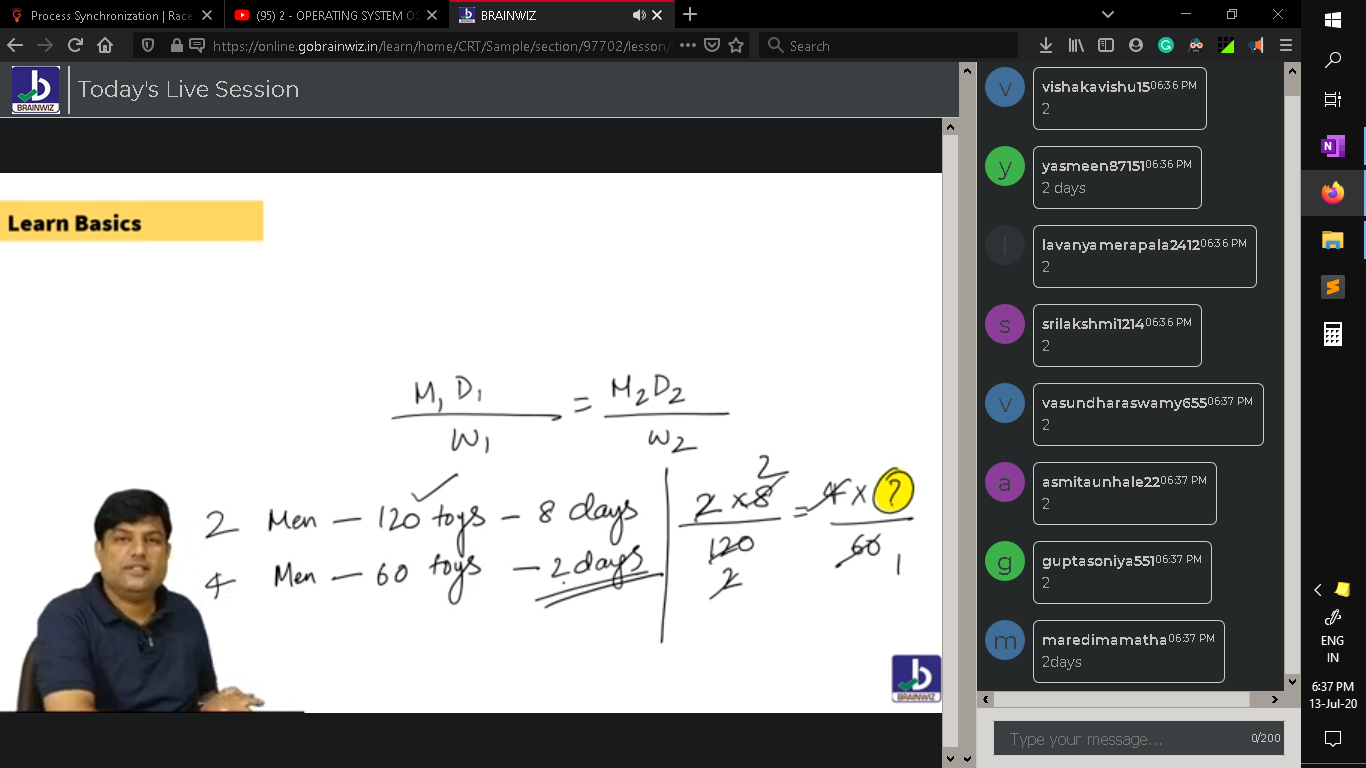 Process Synchronization | Race
(95) 2 - OPERATING SYSTEM OS
BRAINWIZ
https://online.gobrainwiz.in/learn/home/CRT/Sample/section/97702/lesson/
Search
BRAINWIZ
Today's Live Session
Learn Basics
M1 D1 / W1 = M2 D2 / W2
2 Men – 120 toys – 8 days
4 Men – 60 toys – 2 days
2 × 8 / 120 = 4 × ? / 60
2
2
1
BRAINWIZ
v
vishakavishu15 06:36 PM
2
y
yasmeen87151 06:36 PM
2 days
l
lavanyamerapala2412 06:36 PM
2
s
srilakshmi1214 06:36 PM
2
v
vasundharaswamy655 06:37 PM
2
a
asmitaunhale22 06:37 PM
2
g
guptasoniya551 06:37 PM
2
m
maredimamatha 06:37 PM
2days
Type your message...
0/200
N
ENG
IN
6:37 PM
13-Jul-20